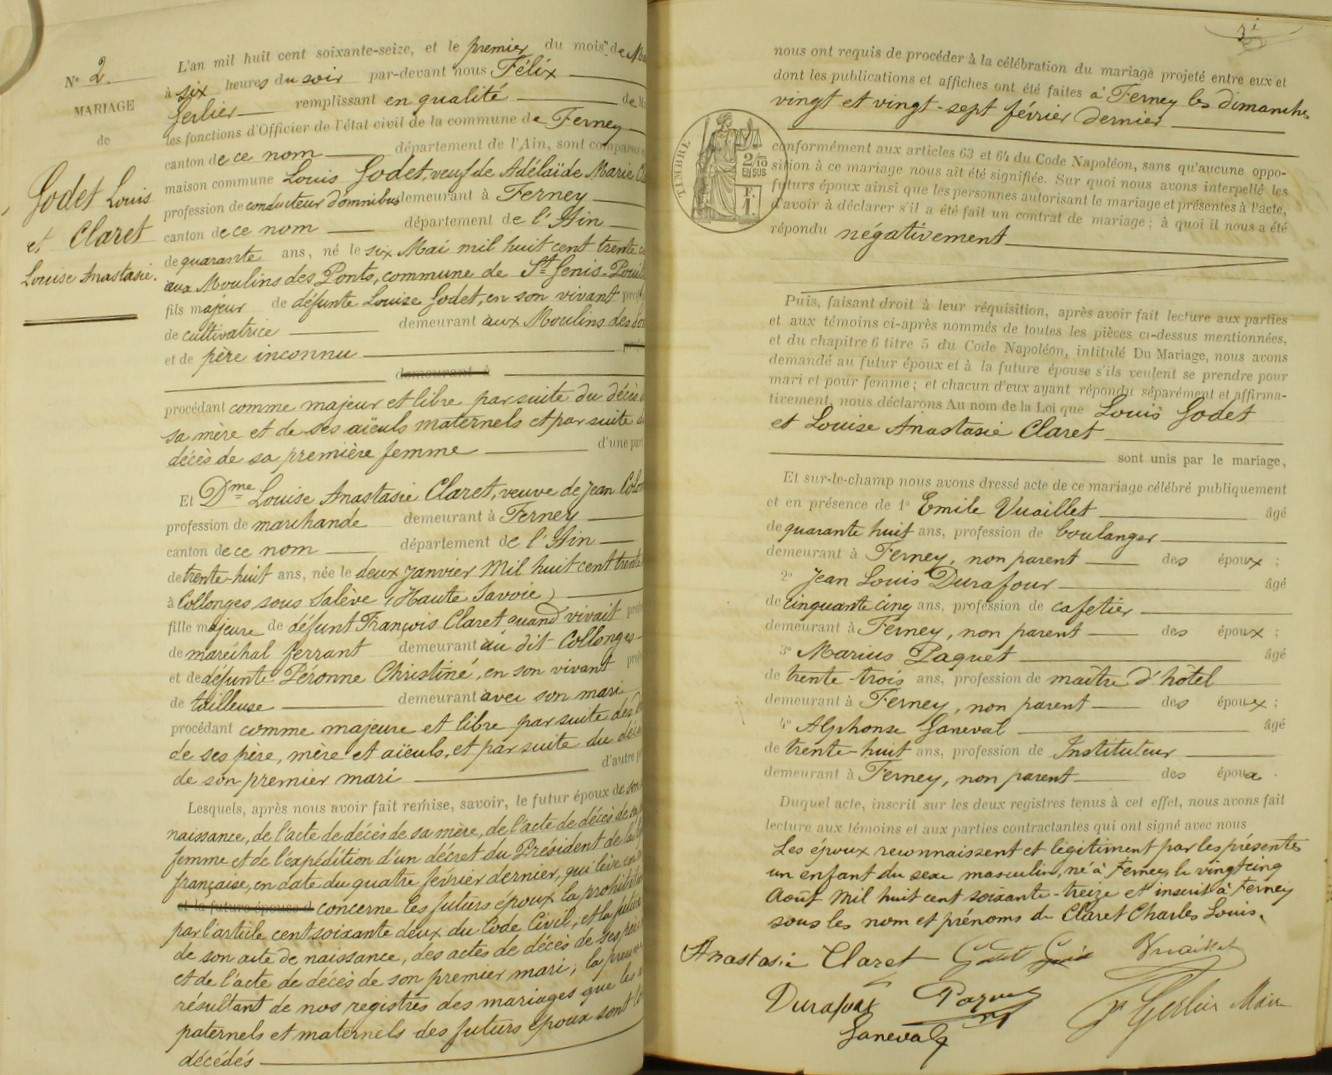 N° 2
MARIAGE
de
Godet Louis
et Claret
Louise Anastasie.
L'an mil huit cent soixante-seize, et le premier du mois de
à six heures du soir par-devant nous Félix
Gerlier remplissant en qualité de
les fonctions d'Officier de l'état civil de la commune de Ferney
canton de ce nom département de l'Ain, sont comparus
maison commune Louis Godet, veuf de Adélaïde Marie
profession de conducteur d'omnibus demeurant à Ferney
canton de ce nom département de l'Ain
de quarante ans, né le six Mai mil huit cent trente
aux Moulins des Ponts, commune de St Genis-Pouilly
fils majeur de défunte Louise Godet, en son vivant
de cultivatrice demeurant aux Moulins des
et de père inconnu
demeurant à
procédant comme majeur et libre par suite du décès
sa mère et de ses aïeuls maternels et par suite
décès de sa première femme d'une part
Et Dme Louise Anastasie Claret, veuve de Jean
profession de marchande demeurant à Ferney
canton de ce nom département de l'Ain
de trente-huit ans, née le deux Janvier Mil huit cent trente
à Collonges sous Salève (Haute Savoie)
fille majeure de défunt François Claret quand vivait
de maréchal ferrant demeurant au dit Collonges
et de défunte Péronne Christiné, en son vivant
de tailleuse demeurant avec son mari
procédant comme majeure et libre par suite des
de ses père, mère et aïeuls, et par suite du décès
de son premier mari d'autre part
Lesquels, après nous avoir fait remise, savoir, le futur époux de son
naissance, de l'acte de décès de sa mère, de l'acte de décès de sa
femme et de l'expédition d'un décret du Président de la
française, en date du quatre février dernier, qui lève en
et la future épouse d concerne les futurs époux la prohibition
par l'article cent soixante deux du Code Civil, et la future
de son acte de naissance, des actes de décès de ses père
et de l'acte de décès de son premier mari; la preuve
résultant de nos registres des mariages que les
paternels et maternels des futurs époux sont
décédés
nous ont requis de procéder à la célébration du mariage projeté entre eux et
dont les publications et affiches ont été faites à Ferney les dimanches
vingt et vingt-sept février dernier
TIMBRE
conformément aux articles 63 et 64 du Code Napoléon, sans qu'aucune oppo-
sition à ce mariage nous ait été signifiée. Sur quoi nous avons interpellé les
futurs époux ainsi que les personnes autorisant le mariage et présentes à l'acte,
d'avoir à déclarer s'il a été fait un contrat de mariage; à quoi il nous a été
répondu négativement
Puis, faisant droit à leur réquisition, après avoir fait lecture aux parties
et aux témoins ci-après nommés de toutes les pièces ci-dessus mentionnées,
et du chapitre 6 titre 5 du Code Napoléon, intitulé Du Mariage, nous avons
demandé au futur époux et à la future épouse s'ils veulent se prendre pour
mari et pour femme; et chacun d'eux ayant répondu séparément et affirma-
tivement, nous déclarons Au nom de la Loi que Louis Godet
et Louise Anastasie Claret
sont unis par le mariage,
Et sur-le-champ nous avons dressé acte de ce mariage célébré publiquement
et en présence de 1° Emile Vuaillet âgé
de quarante huit ans, profession de boulanger
demeurant à Ferney, non parent des époux;
2° Jean Louis Durafour âgé
de cinquante cinq ans, profession de cafetier
demeurant à Ferney, non parent des époux;
3° Marius Paquet âgé
de trente-trois ans, profession de maître d'hôtel
demeurant à Ferney, non parent des époux;
4° Alphonse Ganeval âgé
de trente-huit ans, profession de Instituteur
demeurant à Ferney, non parent des époux.
Duquel acte, inscrit sur les deux registres tenus à cet effet, nous avons fait
lecture aux témoins et aux parties contractantes qui ont signé avec nous
Les époux reconnaissent et légitiment par les présentes
un enfant du sexe masculin, né à Ferney, le vingt cinq
Août Mil huit cent soixante-treize et inscrit à Ferney
sous les nom et prénoms de Claret Charles Louis.
Anastasie Claret Godet Louis Vuaillet
Durafour Paquet
Ganeval F Gerlier Maire